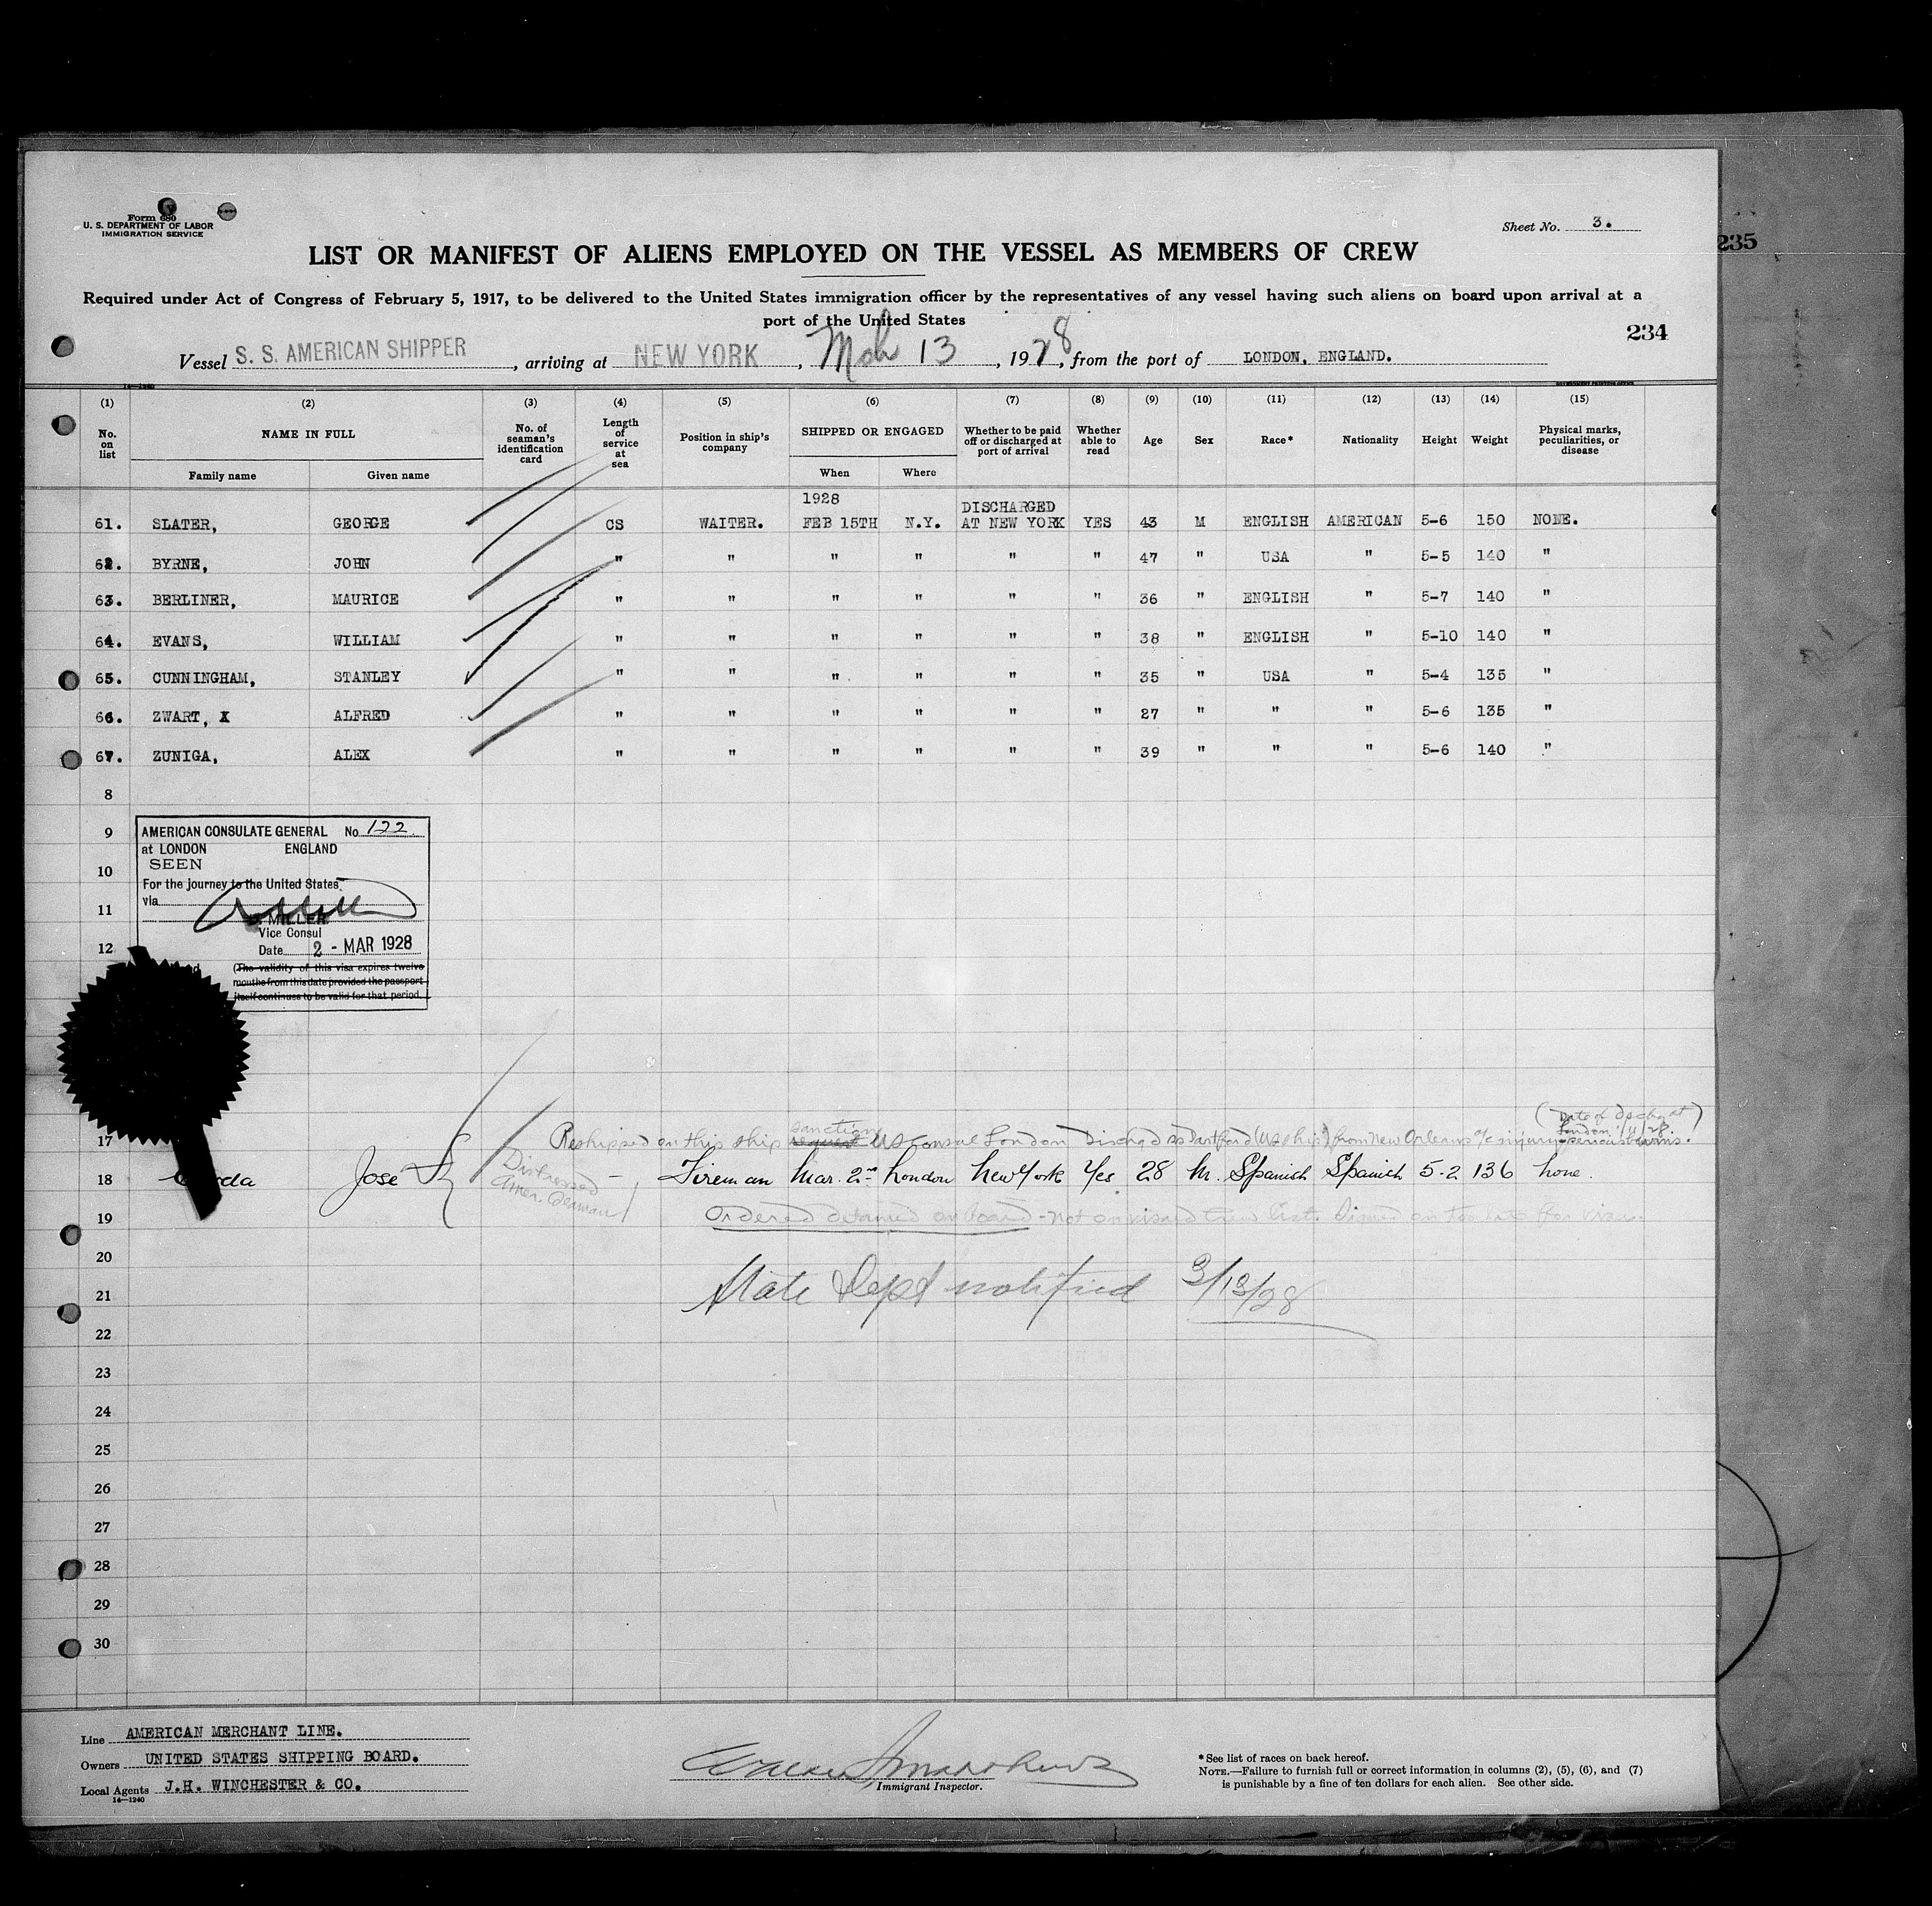 Form 680
U. S. DEPARTMENT OF LABOR
IMMIGRATION SERVICE
Sheet No. 3.
LIST OR MANIFEST OF ALIENS EMPLOYED ON THE VESSEL AS MEMBERS OF CREW
235
Required under Act of Congress of February 5, 1917, to be delivered to the United States immigration officer by the representatives of any vessel having such aliens on board upon arrival at a
port of the United States
234
Vessel S. S. AMERICAN SHIPPER, arriving at NEW YORK, Mch 13, 1928, from the port of LONDON, ENGLAND.
14—1240
(1) (2) (3) (4) (5) (6) (7) (8) (9) (10) (11) (12) (13) (14) (15)
No. on list NAME IN FULL No. of seaman's identification card Length of service at sea Position in ship's company SHIPPED OR ENGAGED Whether to be paid off or discharged at port of arrival Whether able to read Age Sex Race* Nationality Height Weight Physical marks, peculiarities, or disease
Family name Given name When Where
1928 DISCHARGED
61. SLATER, GEORGE CS WAITER. FEB 15TH N.Y. AT NEW YORK YES 43 M ENGLISH AMERICAN 5-6 150 NONE.
62. BYRNE, JOHN " " " " " " 47 " USA " 5-5 140 "
63. BERLINER, MAURICE " " " " " " 36 " ENGLISH " 5-7 140 "
64. EVANS, WILLIAM " " " " " " 38 " ENGLISH " 5-10 140 "
65. CUNNINGHAM, STANLEY " " " " " " 35 " USA " 5-4 135 "
66. ZWART, X ALFRED " " " " " " 27 " " " 5-6 135 "
67. ZUNIGA, ALEX " " " " " " 39 " " " 5-6 140 "
8
9
10
11
12
AMERICAN CONSULATE GENERAL No. 122
at LONDON ENGLAND
SEEN
For the journey to the United States
via
MILLER
Vice Consul
Date 2 - MAR 1928
(The validity of this visa expires twelve
months from this date provided the passport
itself continues to be valid for that period.
(Date of dischg at
London 1/11/28)
sanction
17 Reshipped on this ship request US Consul London Dischgd ss Dartford (US ship) from New Orleans a/c injury - serious burns.
18 Jose Fireman Mar. 2nd London New York Yes 28 M. Spanish Spanish 5-2 136 none.
Distressed
Amer. Seaman
19 Ordered detained on board - not on visaed crew list. Signed on too late for visa.
20
State Dept notified 3/13/28
21
22
23
24
25
26
27
28
29
30
Line AMERICAN MERCHANT LINE.
Owners UNITED STATES SHIPPING BOARD.
Local Agents J.H. WINCHESTER & CO.
14—1240
Immigrant Inspector.
*See list of races on back hereof.
NOTE.—Failure to furnish full or correct information in columns (2), (5), (6), and (7)
is punishable by a fine of ten dollars for each alien. See other side.